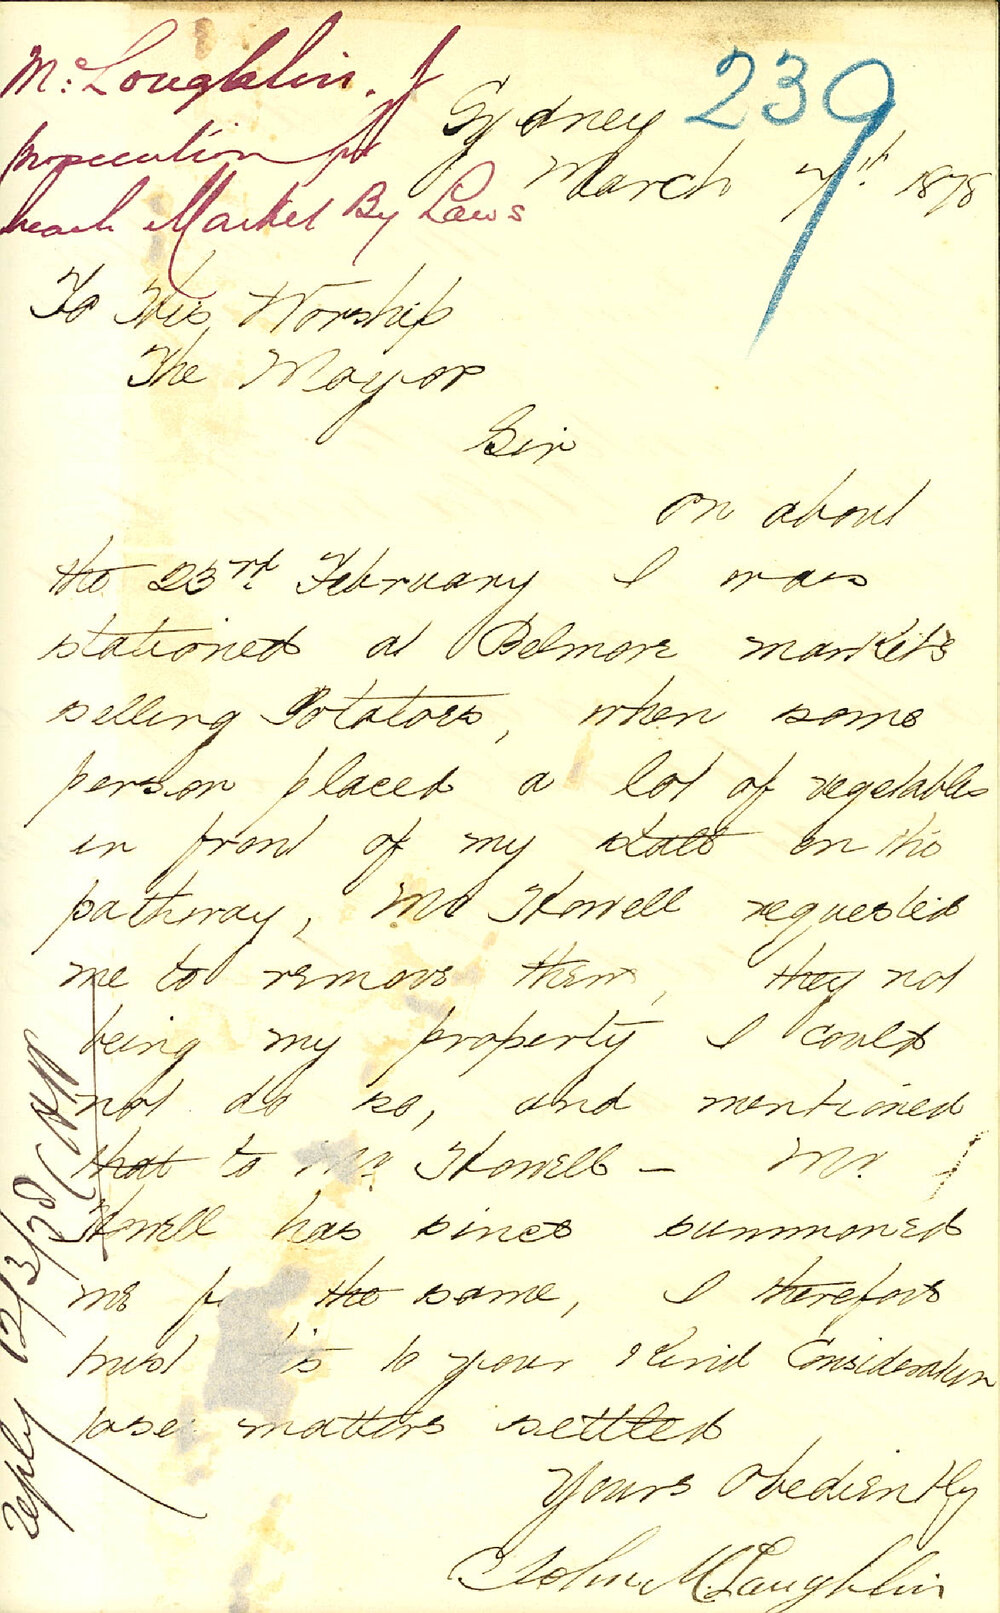 McLoughlin. J
prosecution for
breach Market By Laws
239
Sydney
March 7th 1878
To His Worship
The Mayor
Sir
on about
the 23rd February I was
stationed at Belmore markets
selling Potatoes, when some
person placed a lot of vegetables
in front of my stall on the
pathway, Mr Howell requested
me to remove them, they not
being my property I could
not do so, and mentioned
that to Mr. Howell — Mr.
Howell has since summoned
me for the same, I therefore
trust to your kind Consideration
matters settled
Yours Obediently
John McLaughlin
reply 12/3/78